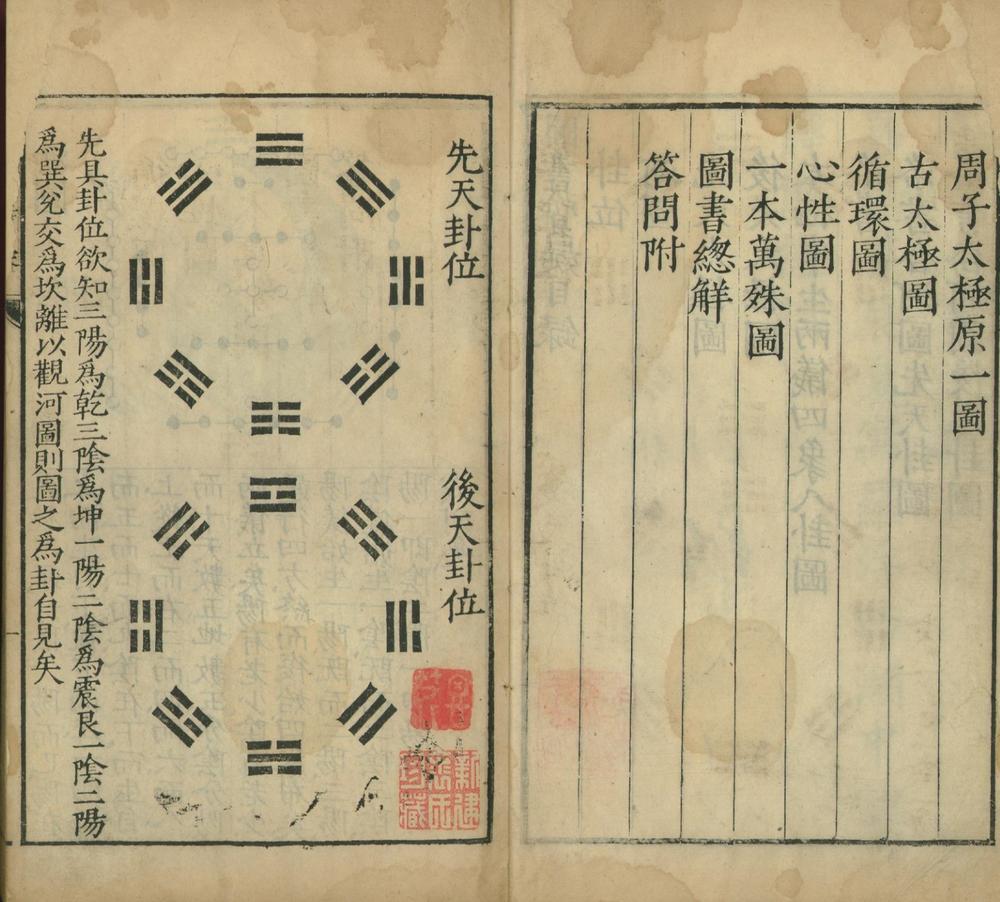 周子太極原一圖
古太極圖
循環圖
心性圖
一本萬殊圖
圖書緫解
答問附
先天卦位
後天卦位
先具卦位欲知三陽爲乾三陰爲坤一陽二陰爲震艮一陰二陽
爲巽兊交爲坎離以觀河圖則圖之爲卦自見矣